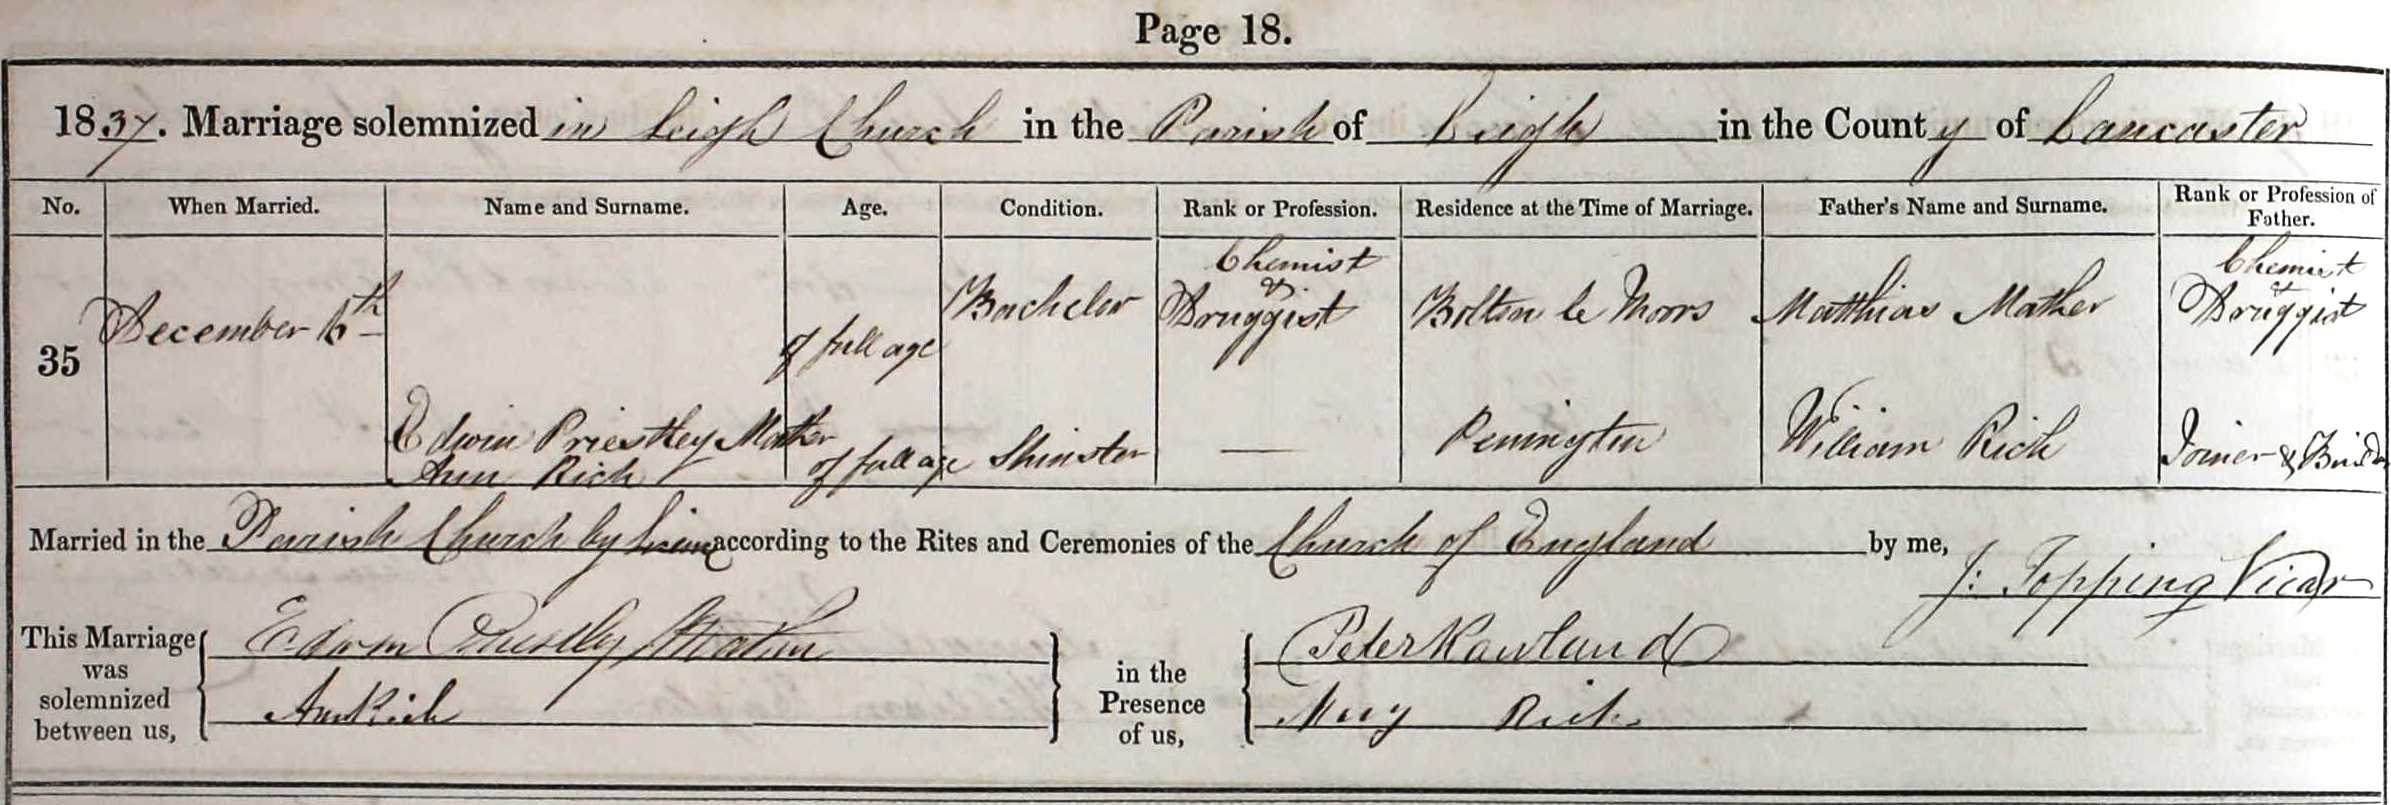 Page 18.
1837. Marriage solemnized in Leigh Church in the Parish of Leigh in the County of Lancaster
No. When Married. Name and Surname. Age. Condition. Rank or Profession. Residence at the Time of Marriage. Father's Name and Surname. Rank or Profession of Father.
35 December 6th Edwin Priestley Mather of full age Bachelor Chemist & Druggist Bolton le Moors Matthias Mather Chemist & Druggist
Ann Rich of full age Spinster — Pennington William Rich Joiner & Builder
Married in the Parish Church by License according to the Rites and Ceremonies of the Church of England by me,
J: Topping Vicar
This Marriage was solemnized between us, Edwin Priestley Mather
Ann Rich
in the Presence of us, Peter Rowland
Mary Rich